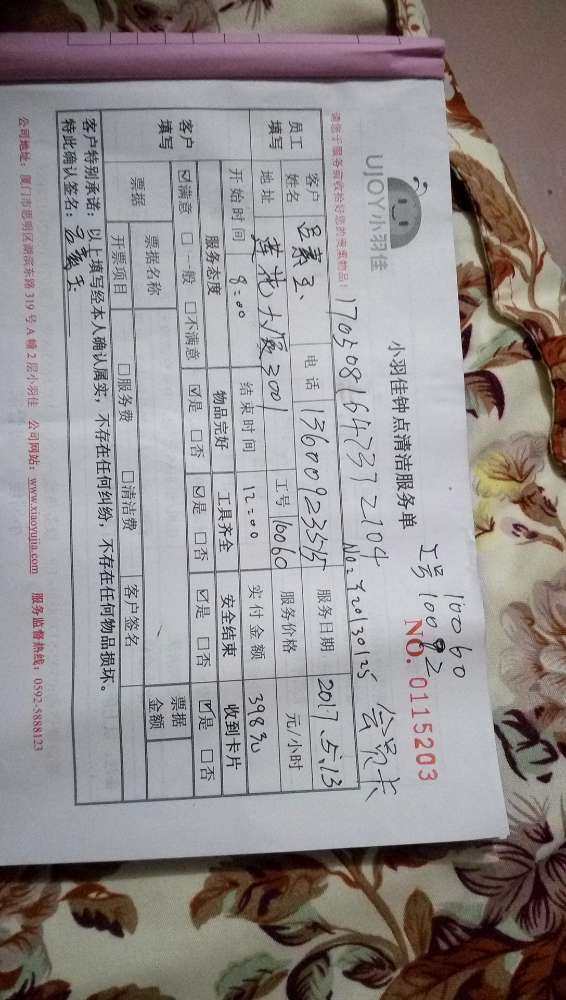 UJOY小羽佳
小羽佳钟点清洁服务单
工号 10060
10092
NO. 0115203
1705081647372104
No: Y20130125 会员卡
请您于服务前收拾好您的贵重物品！
员工填写
客户姓名 电话 13600923515 服务日期 2017.5.13
地址 莲花大厦2001 工号 10060 服务价格 元/小时
开始时间 8:00 结束时间 12:00 实付金额 398元
客户填写
服务态度 物品完好 工具齐全 安全结束 收到卡片
☑满意 □一般 □不满意 ☑是 □否 ☑是 □否 ☑是 □否 ☑是 □否
票据 票据名称 票据金额
开票项目 □服务费 □清洁费 客户签名
客户特别承诺：以上填写经本人确认属实，不存在任何纠纷，不存在任何物品损坏。
特此确认签名：
公司地址：厦门市思明区湖滨东路 319 号 A 幢 2 层小羽佳 公司网站：www.xiaoyujia.com 服务监督热线：0592-5888123